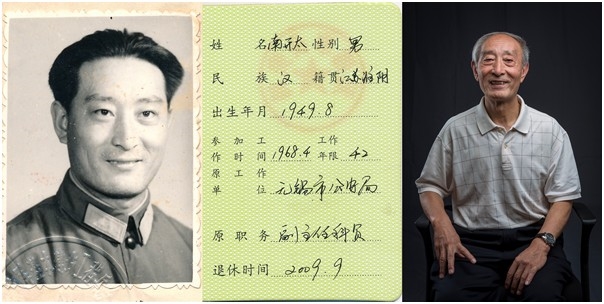 姓 名 南开太 性别 男
民 族 汉 籍贯 江苏
出生年月 1949.8
参加工 工作
作时间 1968.4 年限 42
原工作
单 位 无锡市公安局
原职务 副主任科员
退休时间 2009.9